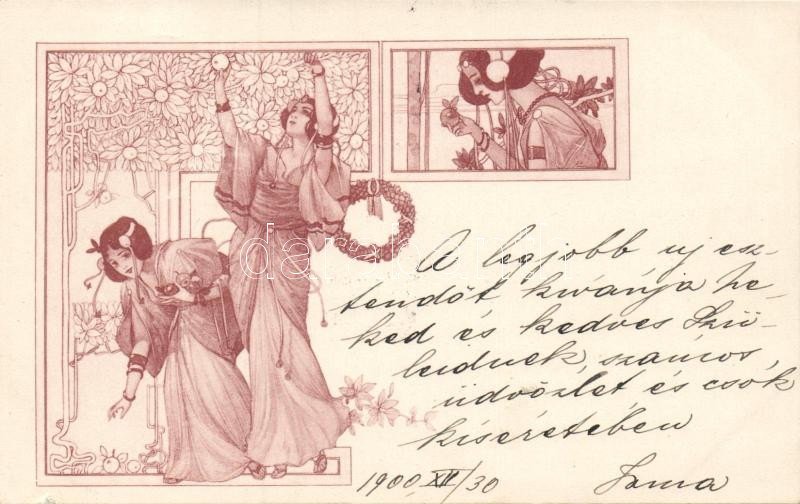 A legjobb uj esz-
tendőt kivánja ne-
ked és kedves Szü-
leidnek, számos,
üdvözlet és csók
kiséretében
1900 XII/30 Irma